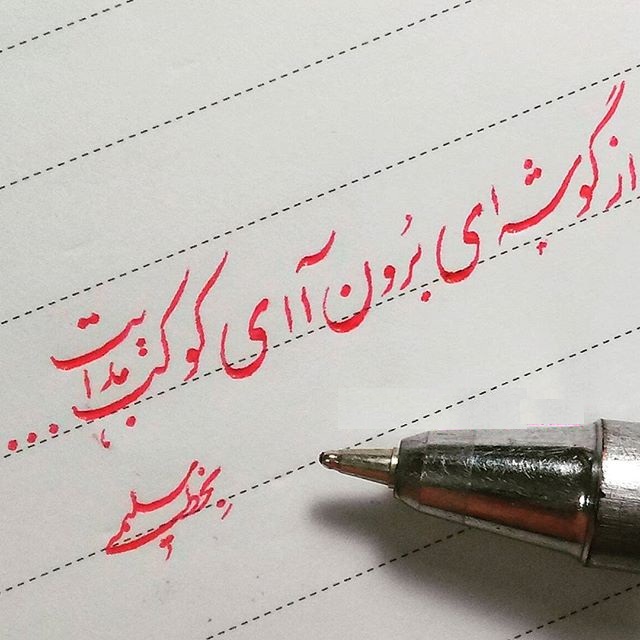 از گوشه ای برون آ ای کوکب هدایت ...
بخط سلیمی